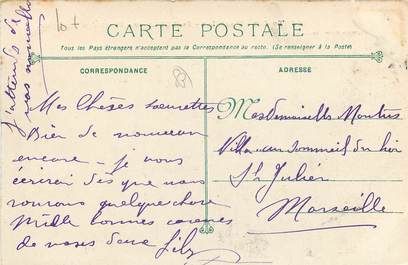 CARTE POSTALE
Tous les Pays étrangers n'acceptent pas la Correspondance au recto. (Se renseigner à la Poste)
CORRESPONDANCE
ADRESSE
J'attends de
vos nouvelles
Mes Chères soeurettes
Bien de nouveau
encore - je vous
écrirai dès que nous
saurons quelque chose
Mille bonnes caresses
de nous deux Lily
Mesdemoiselles
Villa au Sommeil du
St Julien
Marseille